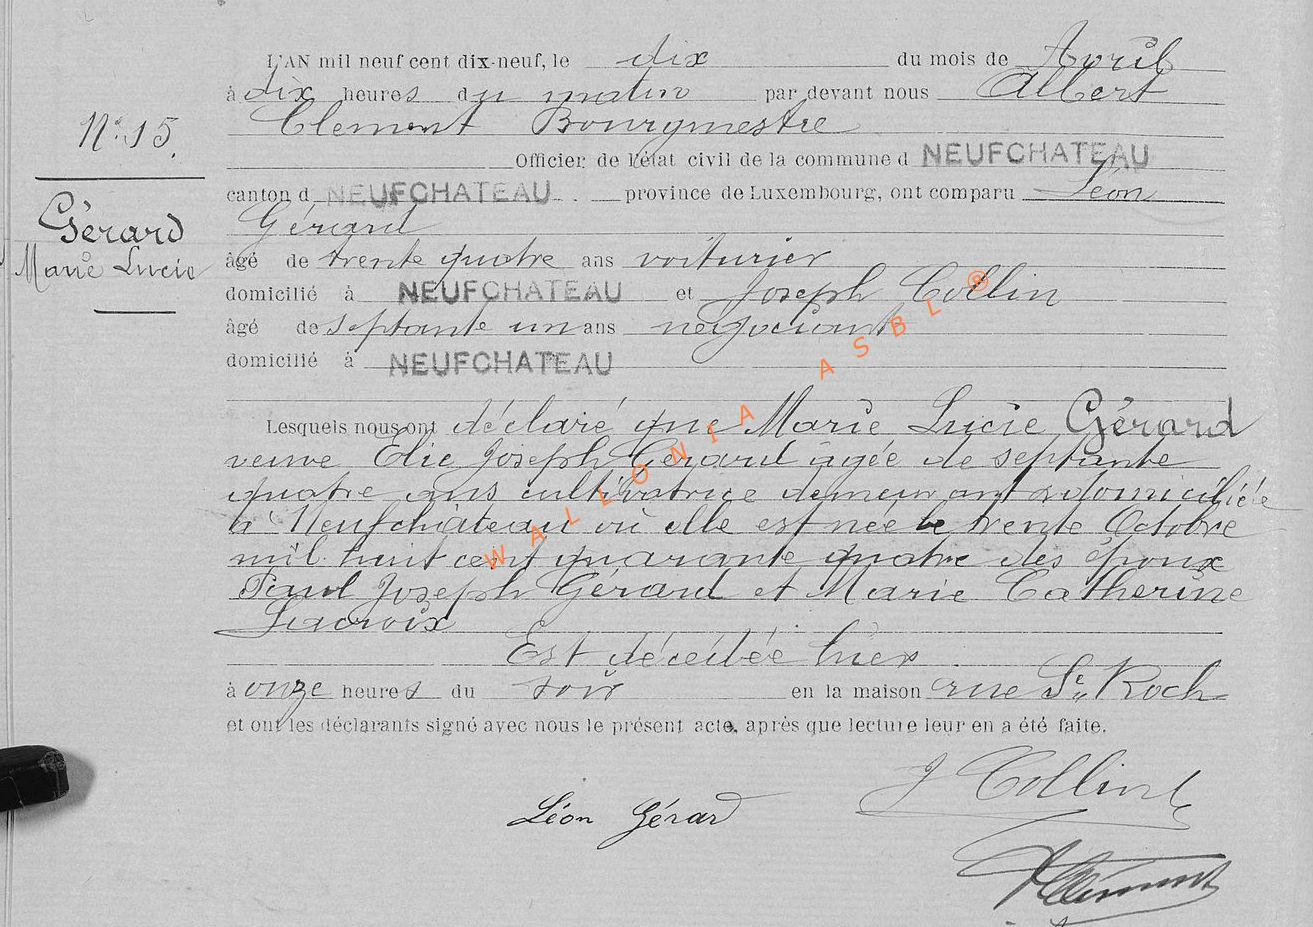 L'AN mil neuf cent dix-neuf, le dix du mois de Avril
à dix heures du matin par devant nous Albert
N° 15.
Clement Bourgmestre
Officier de l'état civil de la commune d NEUFCHATEAU
canton d NEUFCHATEAU province de Luxembourg, ont comparu Léon
Gérard
Marie Lucie
Gérard
âgé de trente quatre ans voiturier
domicilié à NEUFCHATEAU et Joseph Collin
âgé de septante un ans negociant
domicilié à NEUFCHATEAU
Lesquels nous ont déclaré que Marie Lucie Gérard
veuve Élie Joseph Gérard âgée de septante
quatre ans cultivatrice demeurant & domiciliée
à Neufchâteau où elle est née le trente Octobre
mil huit cent quarante quatre des époux
Paul Joseph Gérard et Marie Catherine
Lacroix
Est décédée hier
à onze heures du soir en la maison rue St Roch
et ont les déclarants signé avec nous le présent acte, après que lecture leur en a été faite.
J Collin
Léon Gérard
AClément
WALLONIA ASBL ®